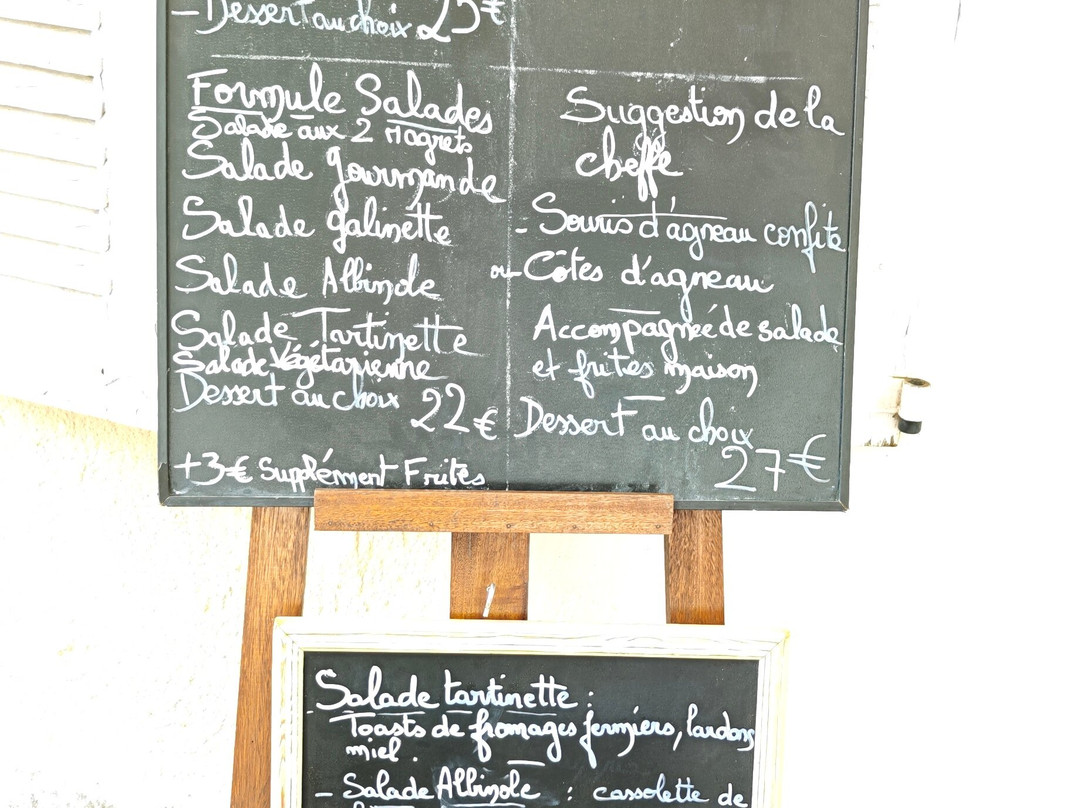 - Dessert au choix 25€
Formule Salades
Salade aux 2 Magrets
Salade Gourmande
Salade Galinette
Salade Albinole
Salade Tartinette
Salade Végétarienne
Dessert au choix 22€
+3€ Supplément Frites
Suggestion de la
cheffe
- Souris d'agneau confite
ou - Côtes d'agneau
Accompagnée de salade
et frites maison
Dessert au choix
27€
Salade tartinette :
Toasts de fromages fermiers, lardons
miel.
- Salade Albinole : cassolette de